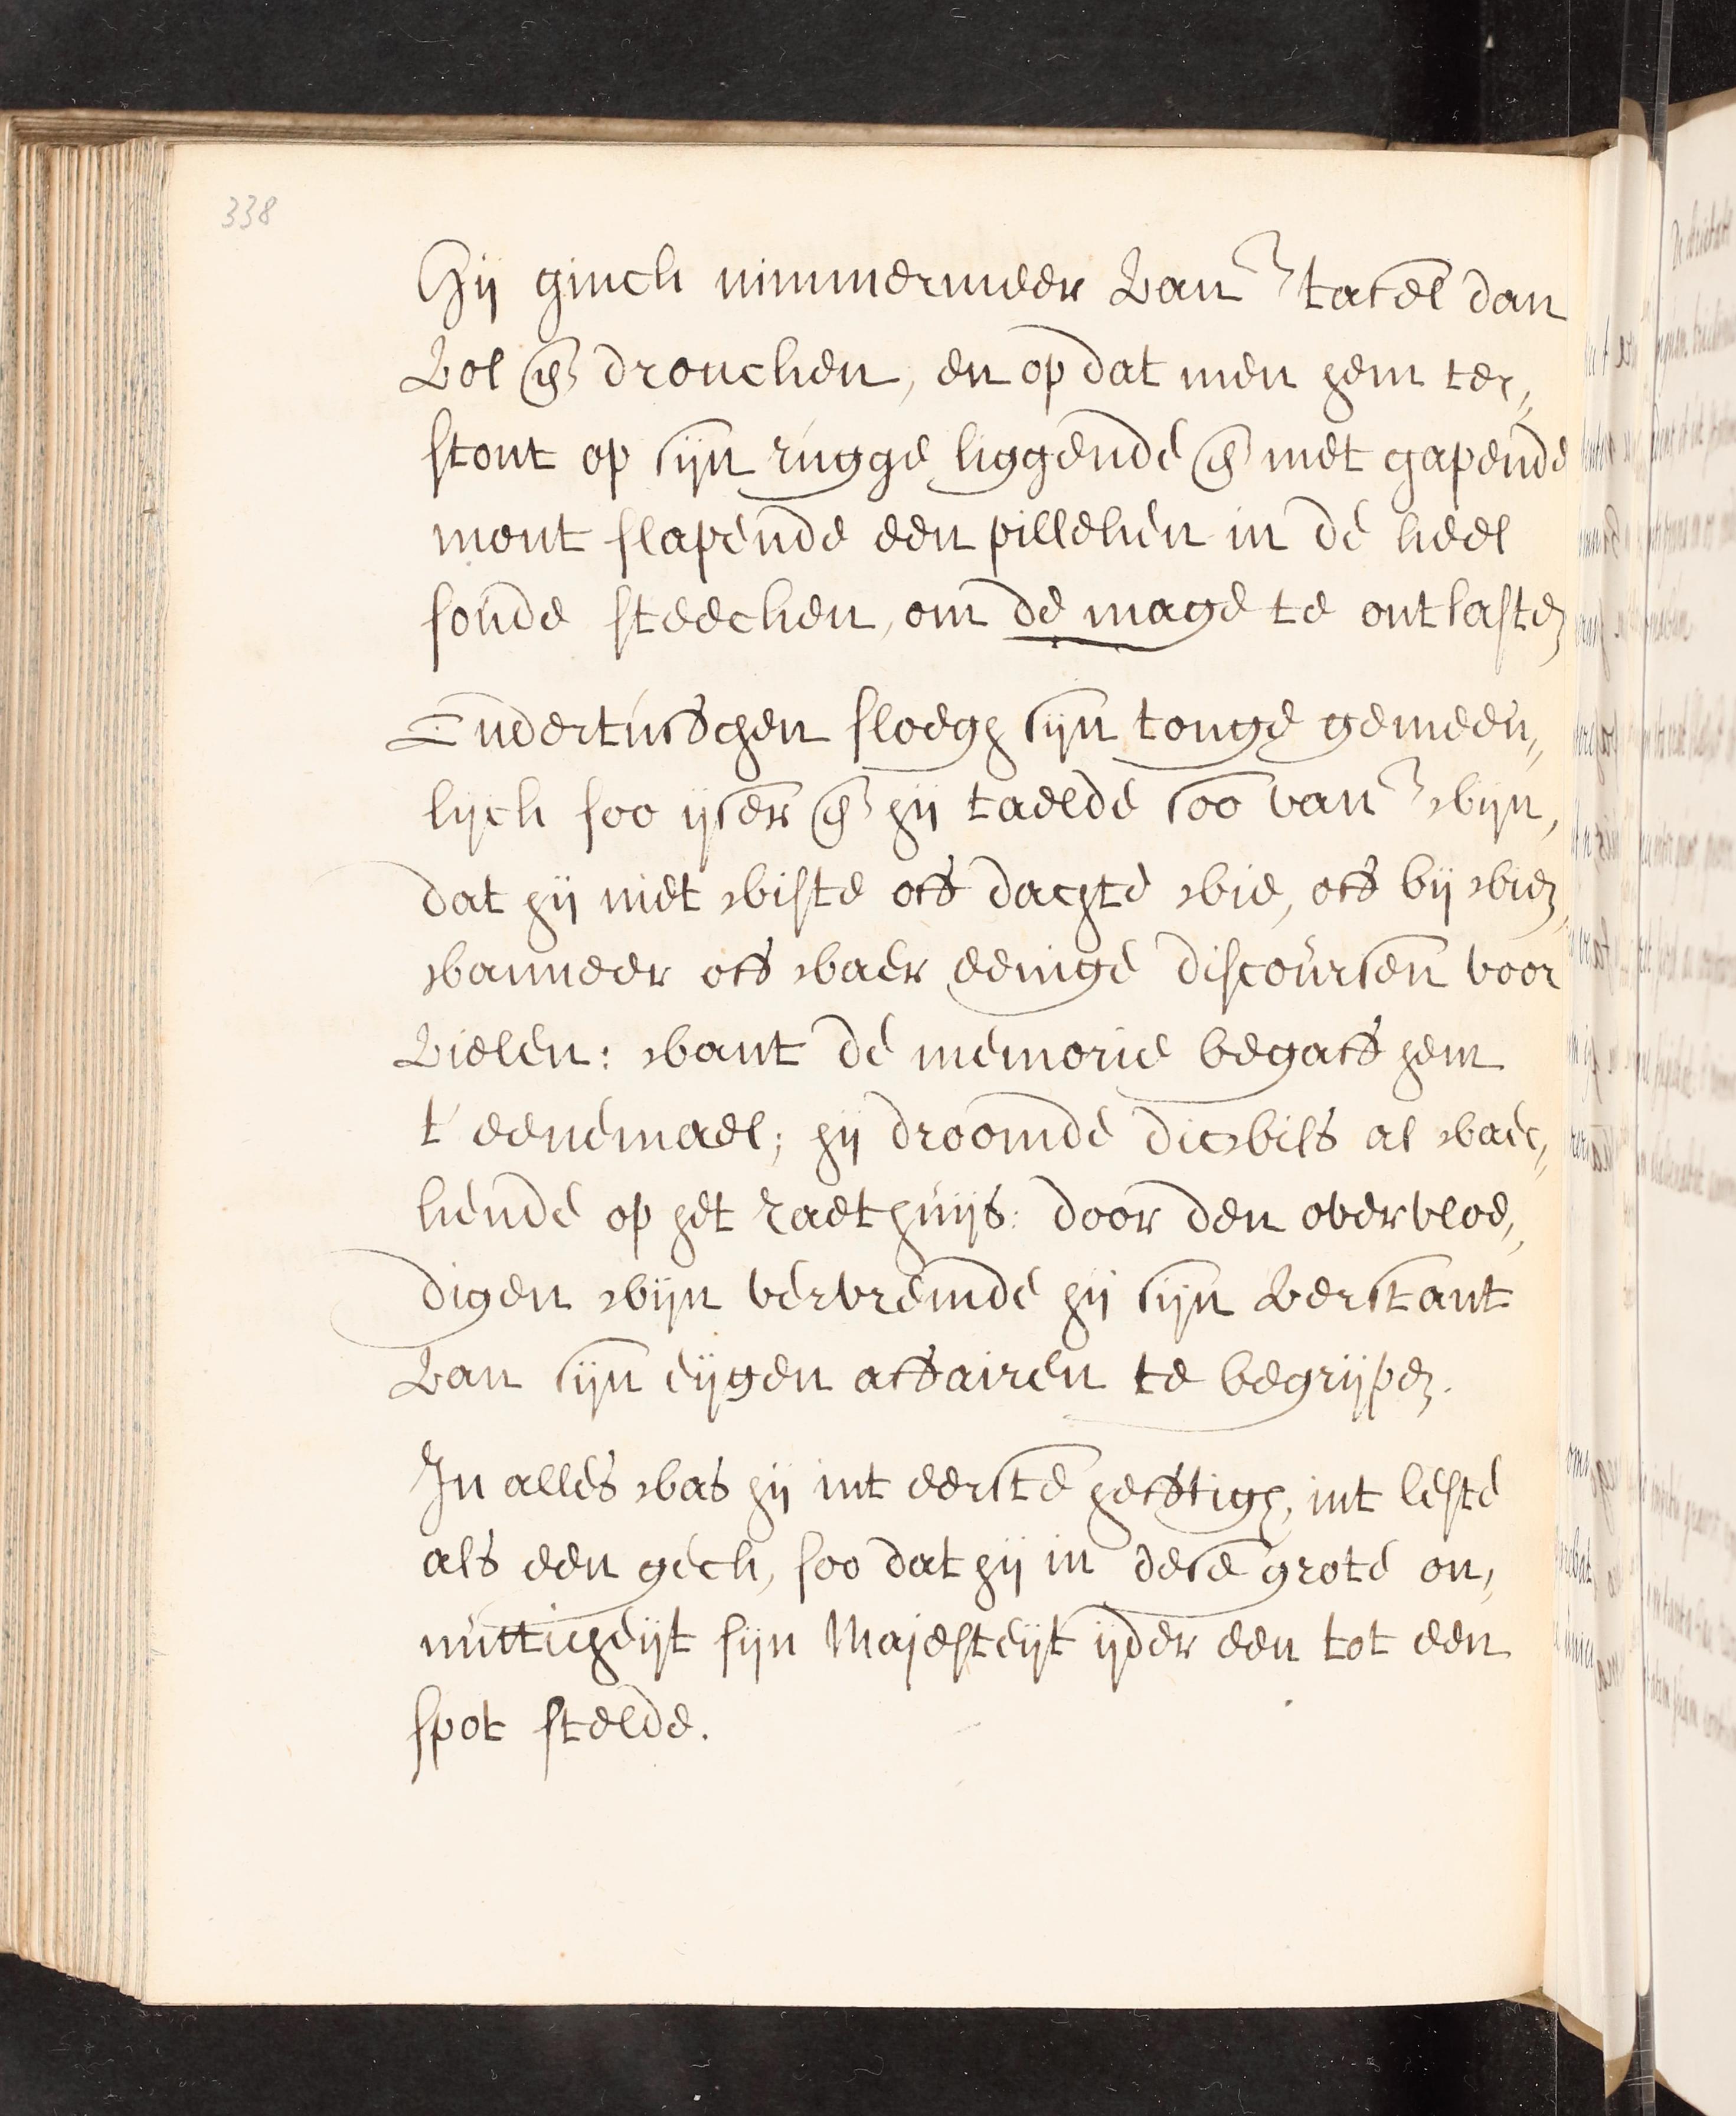 338
Hij ginck nimmermeer van tafel dan
vol en droncken, en op dat men hem ter„
stont op sijn rugge liggende en met gapende
mont slapende een pilleken in de keel
soude steecken, om de mage te ontlasten
Indertusschen sloegh sijn tonge gemeen„
lijck soo ijser en hij taelde soo van wijn,
dat hij niet wiste off dachte wie, off bij wien,
wanneer off waer eenige discoursen voor
vielen: want de memorie begaff hem
t' eenemael; hij droomde dicwils al waec„
kende op het Raethuijs: door den overvloe„
digen wijn vervremde hij sijn verstant
van sijn eijgen affairen te begrijpen.
In alles was hij int eerste hefftigh, int leste
als een geck, soo dat hij in dese grote on„
nutticheijt sijn Majesteijt ijder een tot een
spot stelde.